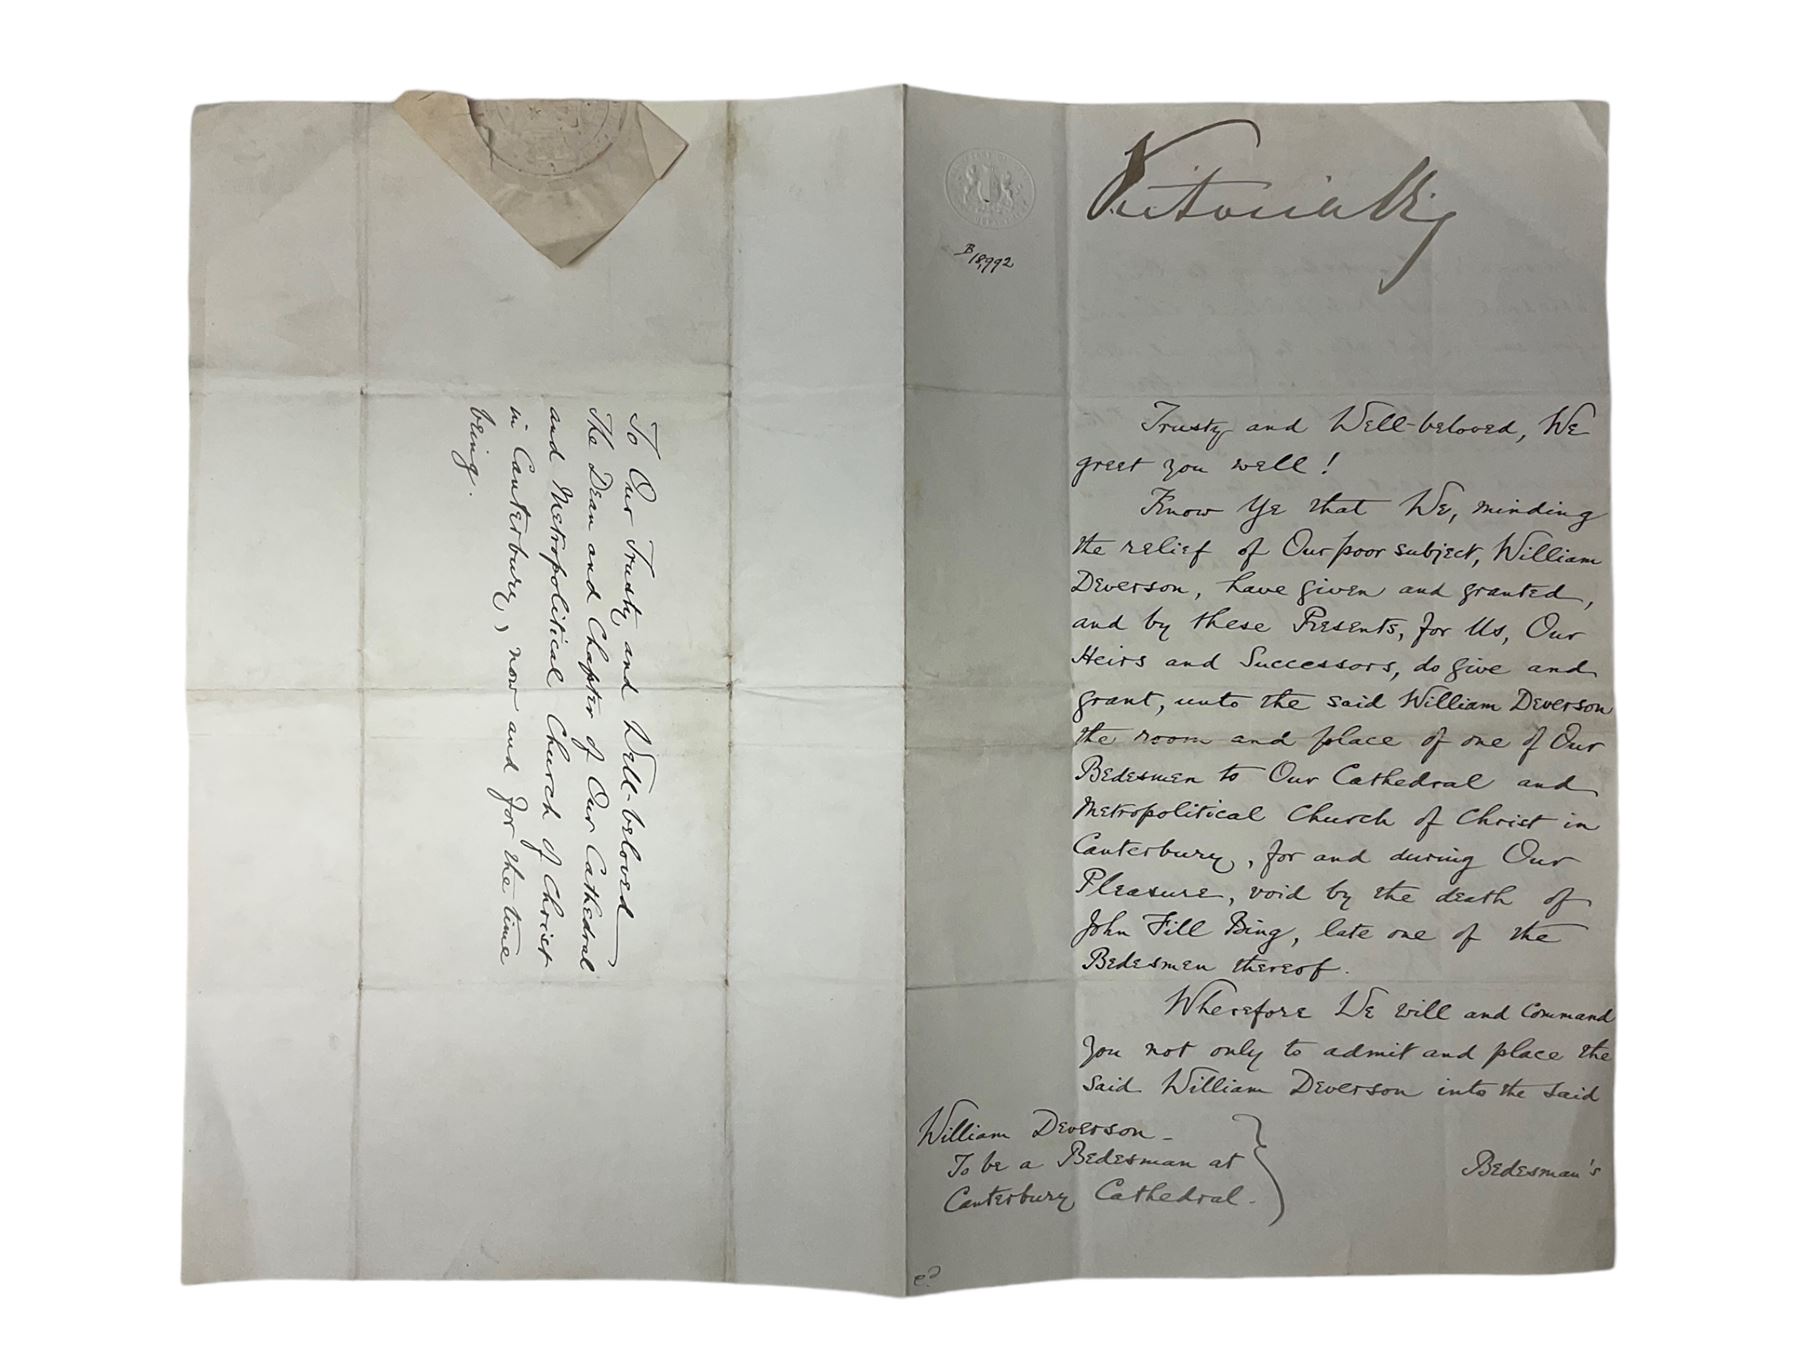 Victoria R.g
B/18,992
Trusty and Well-beloved, We
greet you well!
Know Ye that We, minding
the relief of Our poor subject, William
Deverson, have given and granted,
and by these Presents, for Us, Our
Heirs and Successors, do give and
grant, unto the said William Deverson
the room and place of one of Our
Bedesmen to Our Cathedral and
Metropolitical Church of Christ in
Canterbury, for and during Our
Pleasure, void by the death of
John Fill Bing, late one of the
Bedesmen thereof.
Wherefore We will and command
you not only to admit and place the
said William Deverson into the said
Bedesman's
William Deverson -
To be a Bedesman at
Canterbury Cathedral.
To Our Trusty and Well-beloved
The Dean and Chapter of Our Cathedral
and Metropolitical Church of Christ
in Canterbury, now and for the time
being.